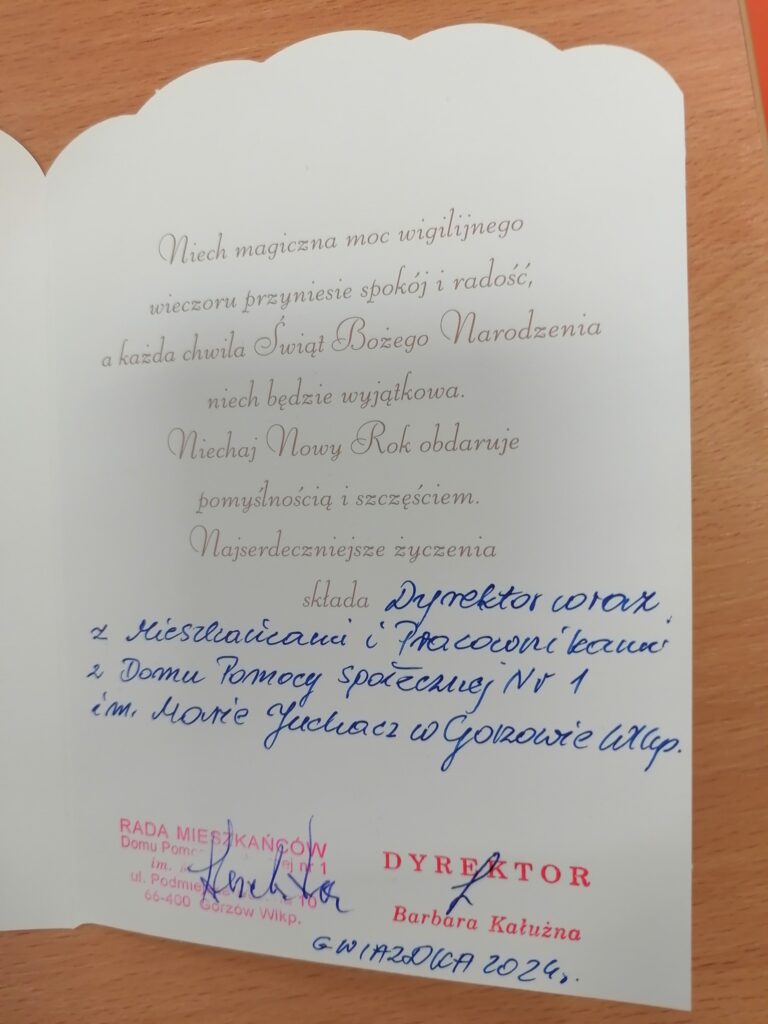 Niech magiczna moc wigilijnego
wieczoru przyniesie spokój i radość,
a każda chwila Świąt Bożego Narodzenia
niech będzie wyjątkowa.
Niechaj Nowy Rok obdaruje
pomyślnością i szczęściem.
Najserdeczniejsze życzenia
składa Dyrektor wraz
z Mieszkańcami i Pracownikami
z Domu Pomocy Społecznej Nr 1
im. Marie Juchacz w Gorzowie Wlkp.
RADA MIESZKAŃCÓW
Domu nr 1
im.
ul. 10
66-400 Gorzów Wlkp.
DYREKTOR
Barbara Kałużna
GWIAZDKA 2024r.